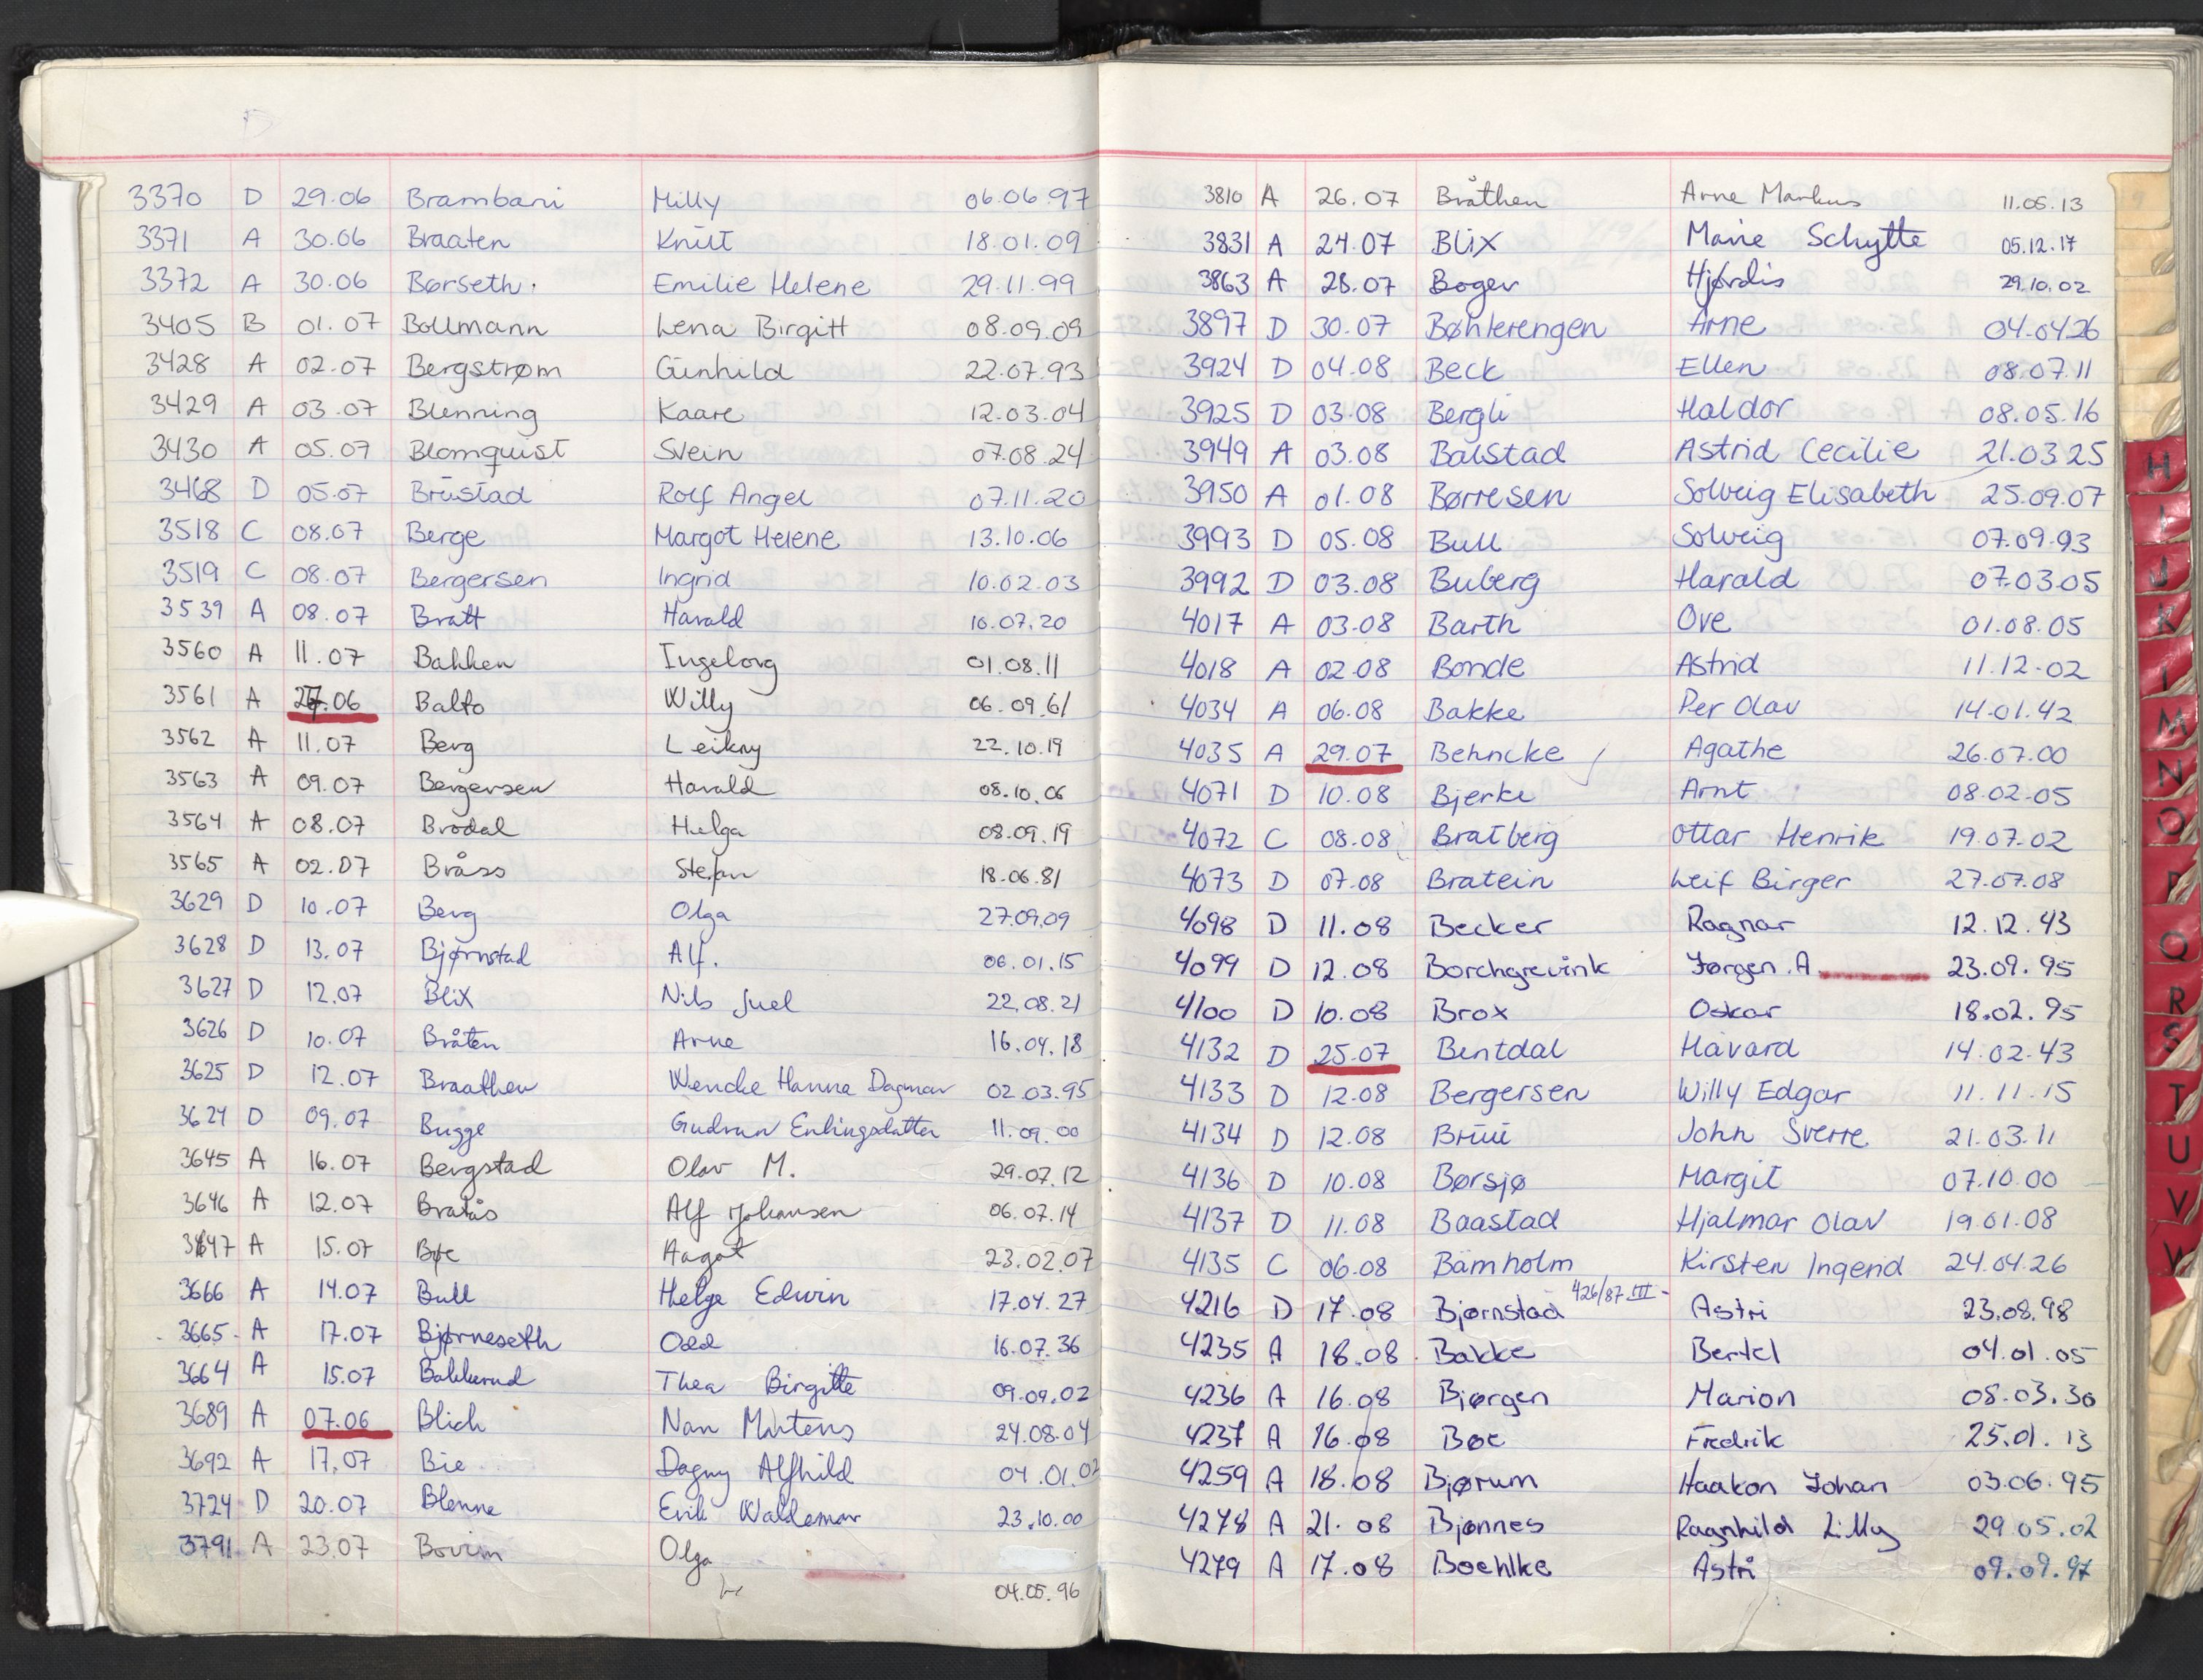 3370 D 29.06 Brambani Milly 06.06.97
3371 A 30.06 Braaten Knut 18.01.09
3372 A 30.06 Børseth. Emilie Helene 29.11.99
3405 B 01.07 Bollmann Lena Birgitt 08.09.09
3428 A 02.07 Bergstrøm Gunhild 22.07.93
3429 A 03.07 Blenning Kaare 12.03.04
3430 A 05.07 Blomquist Svein 07.08.24
3468 D 05.07 Brustad Rolf Angel 07.11.20
3518 C 08.07 Berge Margot Helene 13.10.06
3519 C 08.07 Bergersen Ingrid 10.02.03
3539 A 08.07 Bratt Harald 10.07.20
3560 A 11.07 Bakken Ingeborg 01.08.11
3561 A 27.06 Balto Willy 06.09.61
3562 A 11.07 Berg Leikny 22.10.19
3563 A 09.07 Bergersen Harald 08.10.06
3564 A 08.07 Brodal Helga 08.09.19
3565 A 02.07 Bråss Stefan 18.06.81
3629 D 10.07 Berg Olga 27.09.09
3628 D 13.07 Bjørnstad Alf. 06.01.15
3627 D 12.07 Blix Nils Juel 22.08.21
3626 D 10.07 Bråten Arne 16.04.18
3625 D 12.07 Braathen Wencke Hanna Dagmar 02.03.95
3624 D 09.07 Bugge Gudrun Erlingsdatter 11.09.00
3645 A 16.07 Bergstad Olav M. 29.07.12
3646 A 12.07 Bratås Alf Johansen 06.07.14
3647 A 15.07 Bøe Aagot 23.02.07
3666 A 14.07 Bull Helge Edwin 17.04.27
3665 A 17.07 Bjørneseth Odd 16.07.36
3664 A 15.07 Bakkerud Thea Birgitte 09.09.02
3689 A 07.06 Blich Nan Martens 24.08.04
3692 A 17.07 Bie Dagny Alfhild 04.01.02
3724 D 20.07 Blenne Erik Waldemar 23.10.00
3791 A 23.07 Bovim Olga
04.05.96
3810 A 26.07 Bråthen Arne Markus 11.05.13
3831 A 24.07 Blix Marie Schytte 05.12.17
3863 A 28.07 Boger Hjørdis 29.10.02
3897 D 30.07 Bøhlerengen Arne 04.04.26
3924 D 04.08 Beck Ellen 08.07.11
3925 D 03.08 Bergli Haldor 08.05.16
3949 A 03.08 Balstad Astrid Cecilie 21.03.25
3950 A 01.08 Børresen Solveig Elisabeth 25.09.07
3993 D 05.08 Bull Solveig 07.09.93
3992 D 03.08 Buberg Harald 07.03.05
4017 A 03.08 Barth Ove 01.08.05
4018 A 02.08 Bonde Astrid 11.12.02
4034 A 06.08 Bakke Per Olav 14.01.42
4035 A 29.07 Behncke Agathe 26.07.00
4071 D 10.08 Bjerke Arnt 08.02.05
4072 C 08.08 Bratberg Ottar Henrik 19.07.02
4073 D 07.08 Bratein Leif Birger 27.07.08
4098 D 11.08 Becker Ragnar 12.12.43
4099 D 12.08 Borchgrevink Jørgen. A 23.09.95
4100 D 10.08 Brox Oskar 18.02.95
4132 D 25.07 Bentdal Håvard 14.02.43
4133 D 12.08 Bergersen Willy Edgar 11.11.15
4134 D 12.08 Bruu John Sverre 21.03.11
4136 D 10.08 Børsjø Margit 07.10.00
4137 D 11.08 Baastad Hjalmar Olav 19.01.08
4135 C 06.08 Bamholm Kirsten Ingerid 24.04.26
4216 D 17.08 Bjørnstad 426/87 III - Astri 23.08.98
4235 A 18.08 Bakke Bertel 04.01.05
4236 A 16.08 Bjørgen Marion 08.03.30
4237 A 16.08 Bøe Fredrik 25.01.13
4259 A 18.08 Bjørum Haakon Johan 03.06.95
4278 A 21.08 Bjønnes Ragnhild Lilly 29.05.02
4279 A 17.08 Boehlke Astri 09.09.97
H
I
J
K
L
M
N
O
P
Q
R
S
T
U
V
W